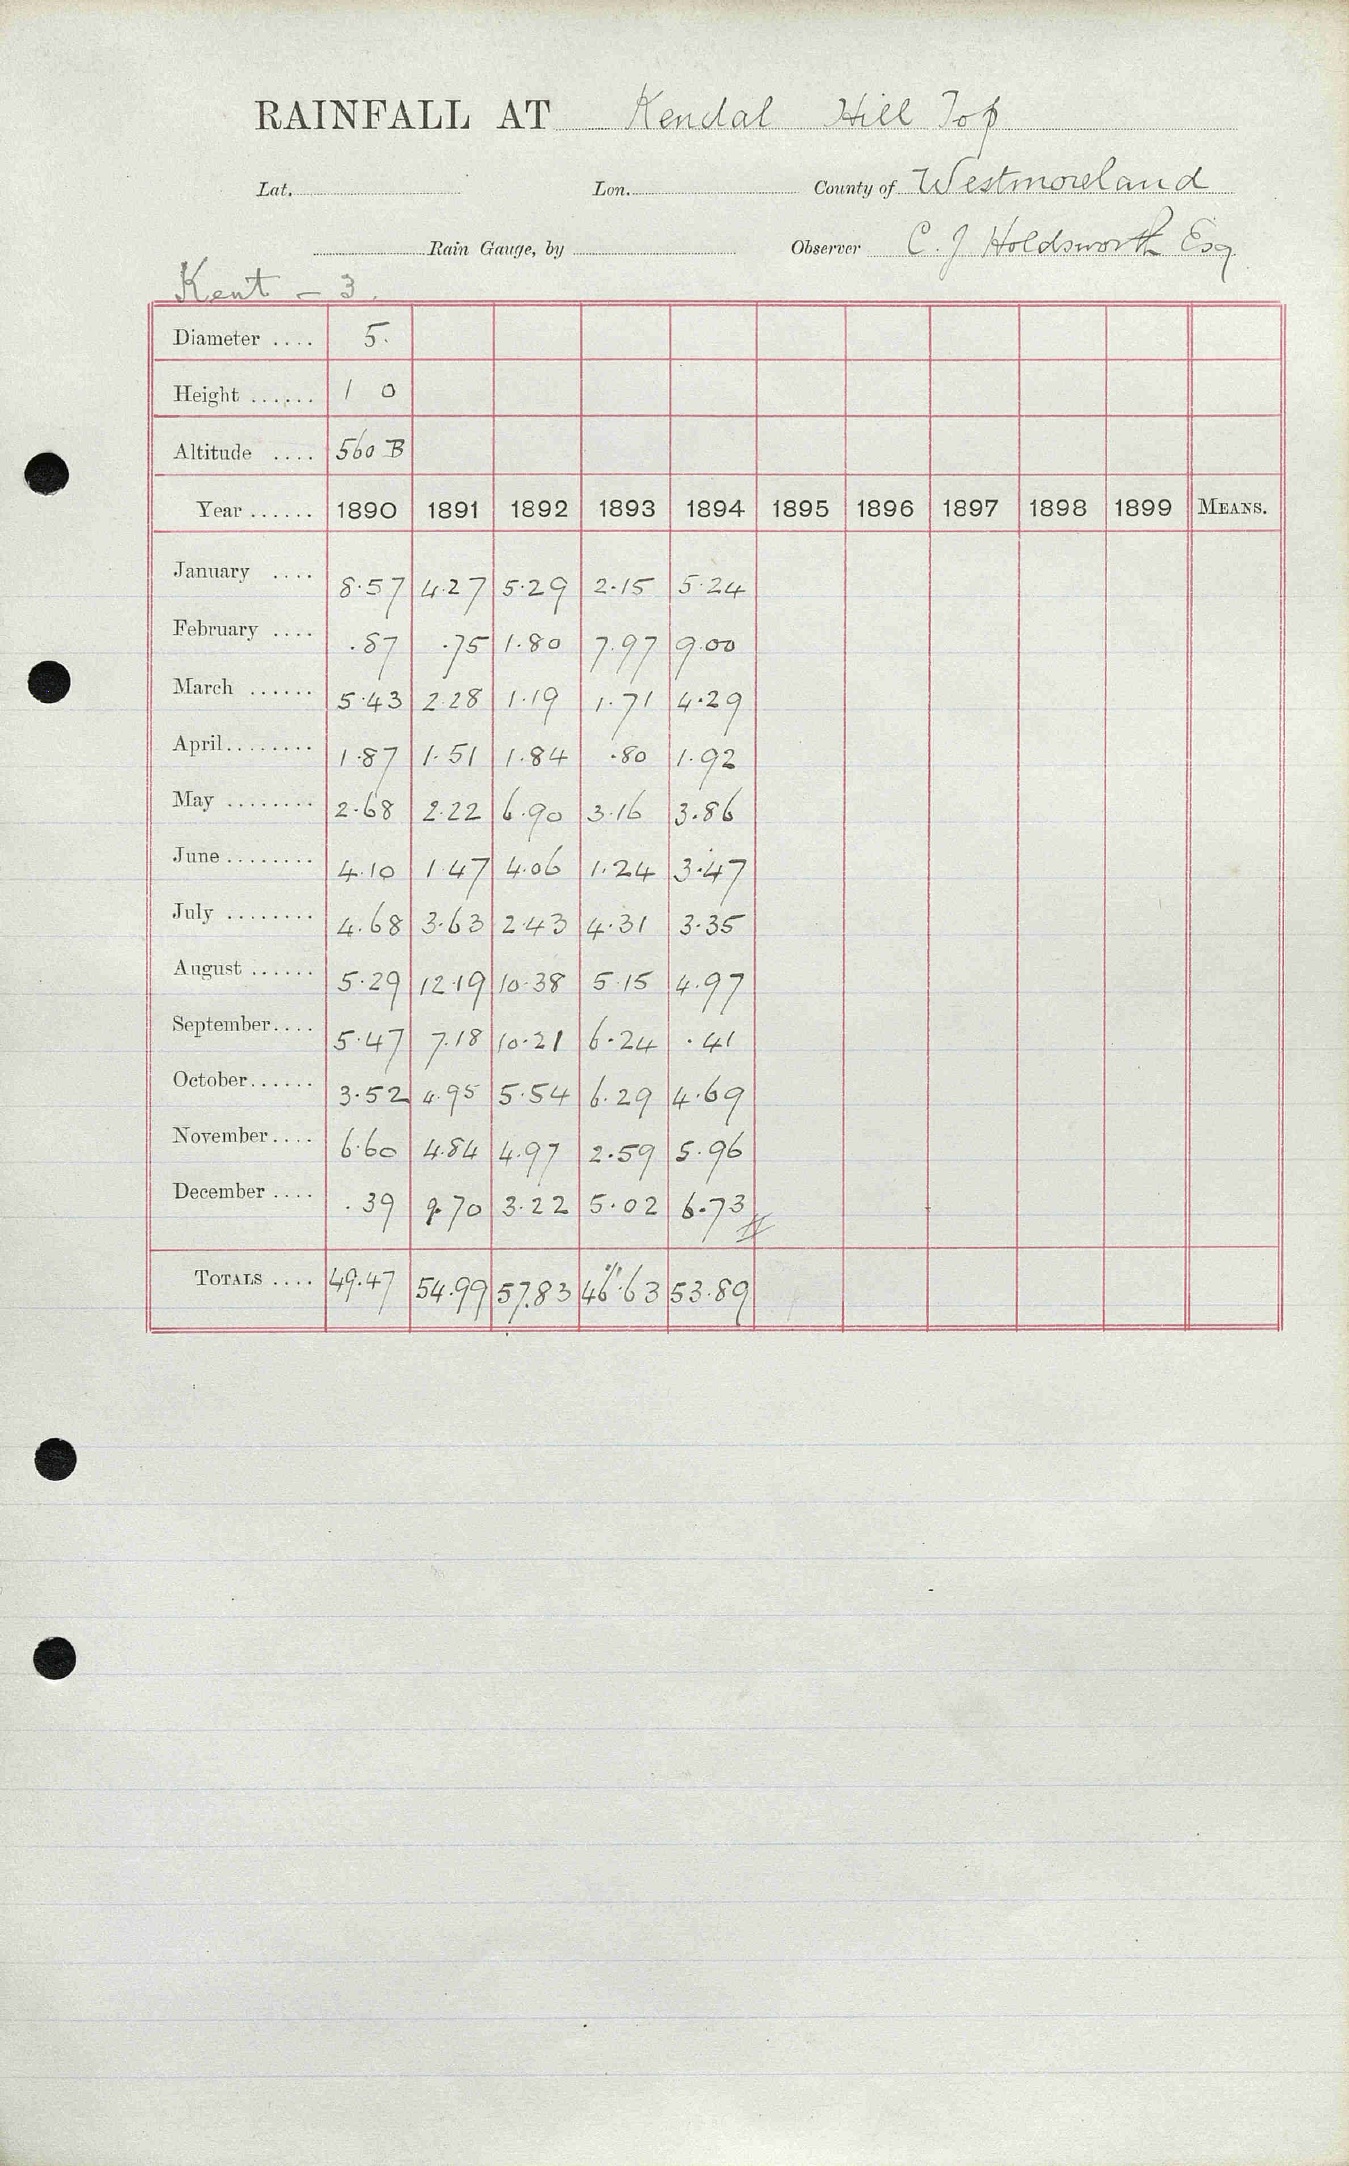 RAINFALL AT Kendal Hill Top
Lat. Lon. County of Westmoreland
Rain Gauge, by Observer C. J Holdsworth Esq
Kent - 3.
Diameter .... 5.
Height ...... 1 0
Altitude .... 560 B
Year ...... 1890 1891 1892 1893 1894 1895 1896 1897 1898 1899 MEANS.
January .... 8.57 4.27 5.29 2.15 5.24
February .... .87 .75 1.80 7.97 9.00
March ...... 5.43 2.28 1.19 1.71 4.29
April ........ 1.87 1.51 1.84 .80 1.92
May ........ 2.68 2.22 6.90 3.16 3.86
June ........ 4.10 1.47 4.06 1.24 3.47
July ........ 4.68 3.63 2.43 4.31 3.35
August ...... 5.29 12.19 10.38 5.15 4.97
September .... 5.47 7.18 10.21 6.24 .41
October ...... 3.52 4.95 5.54 6.29 4.69
November .... 6.60 4.84 4.97 2.59 5.96
December .... .39 9.70 3.22 5.02 6.73
TOTALS .... 49.47 54.99 57.83 46.63 53.89